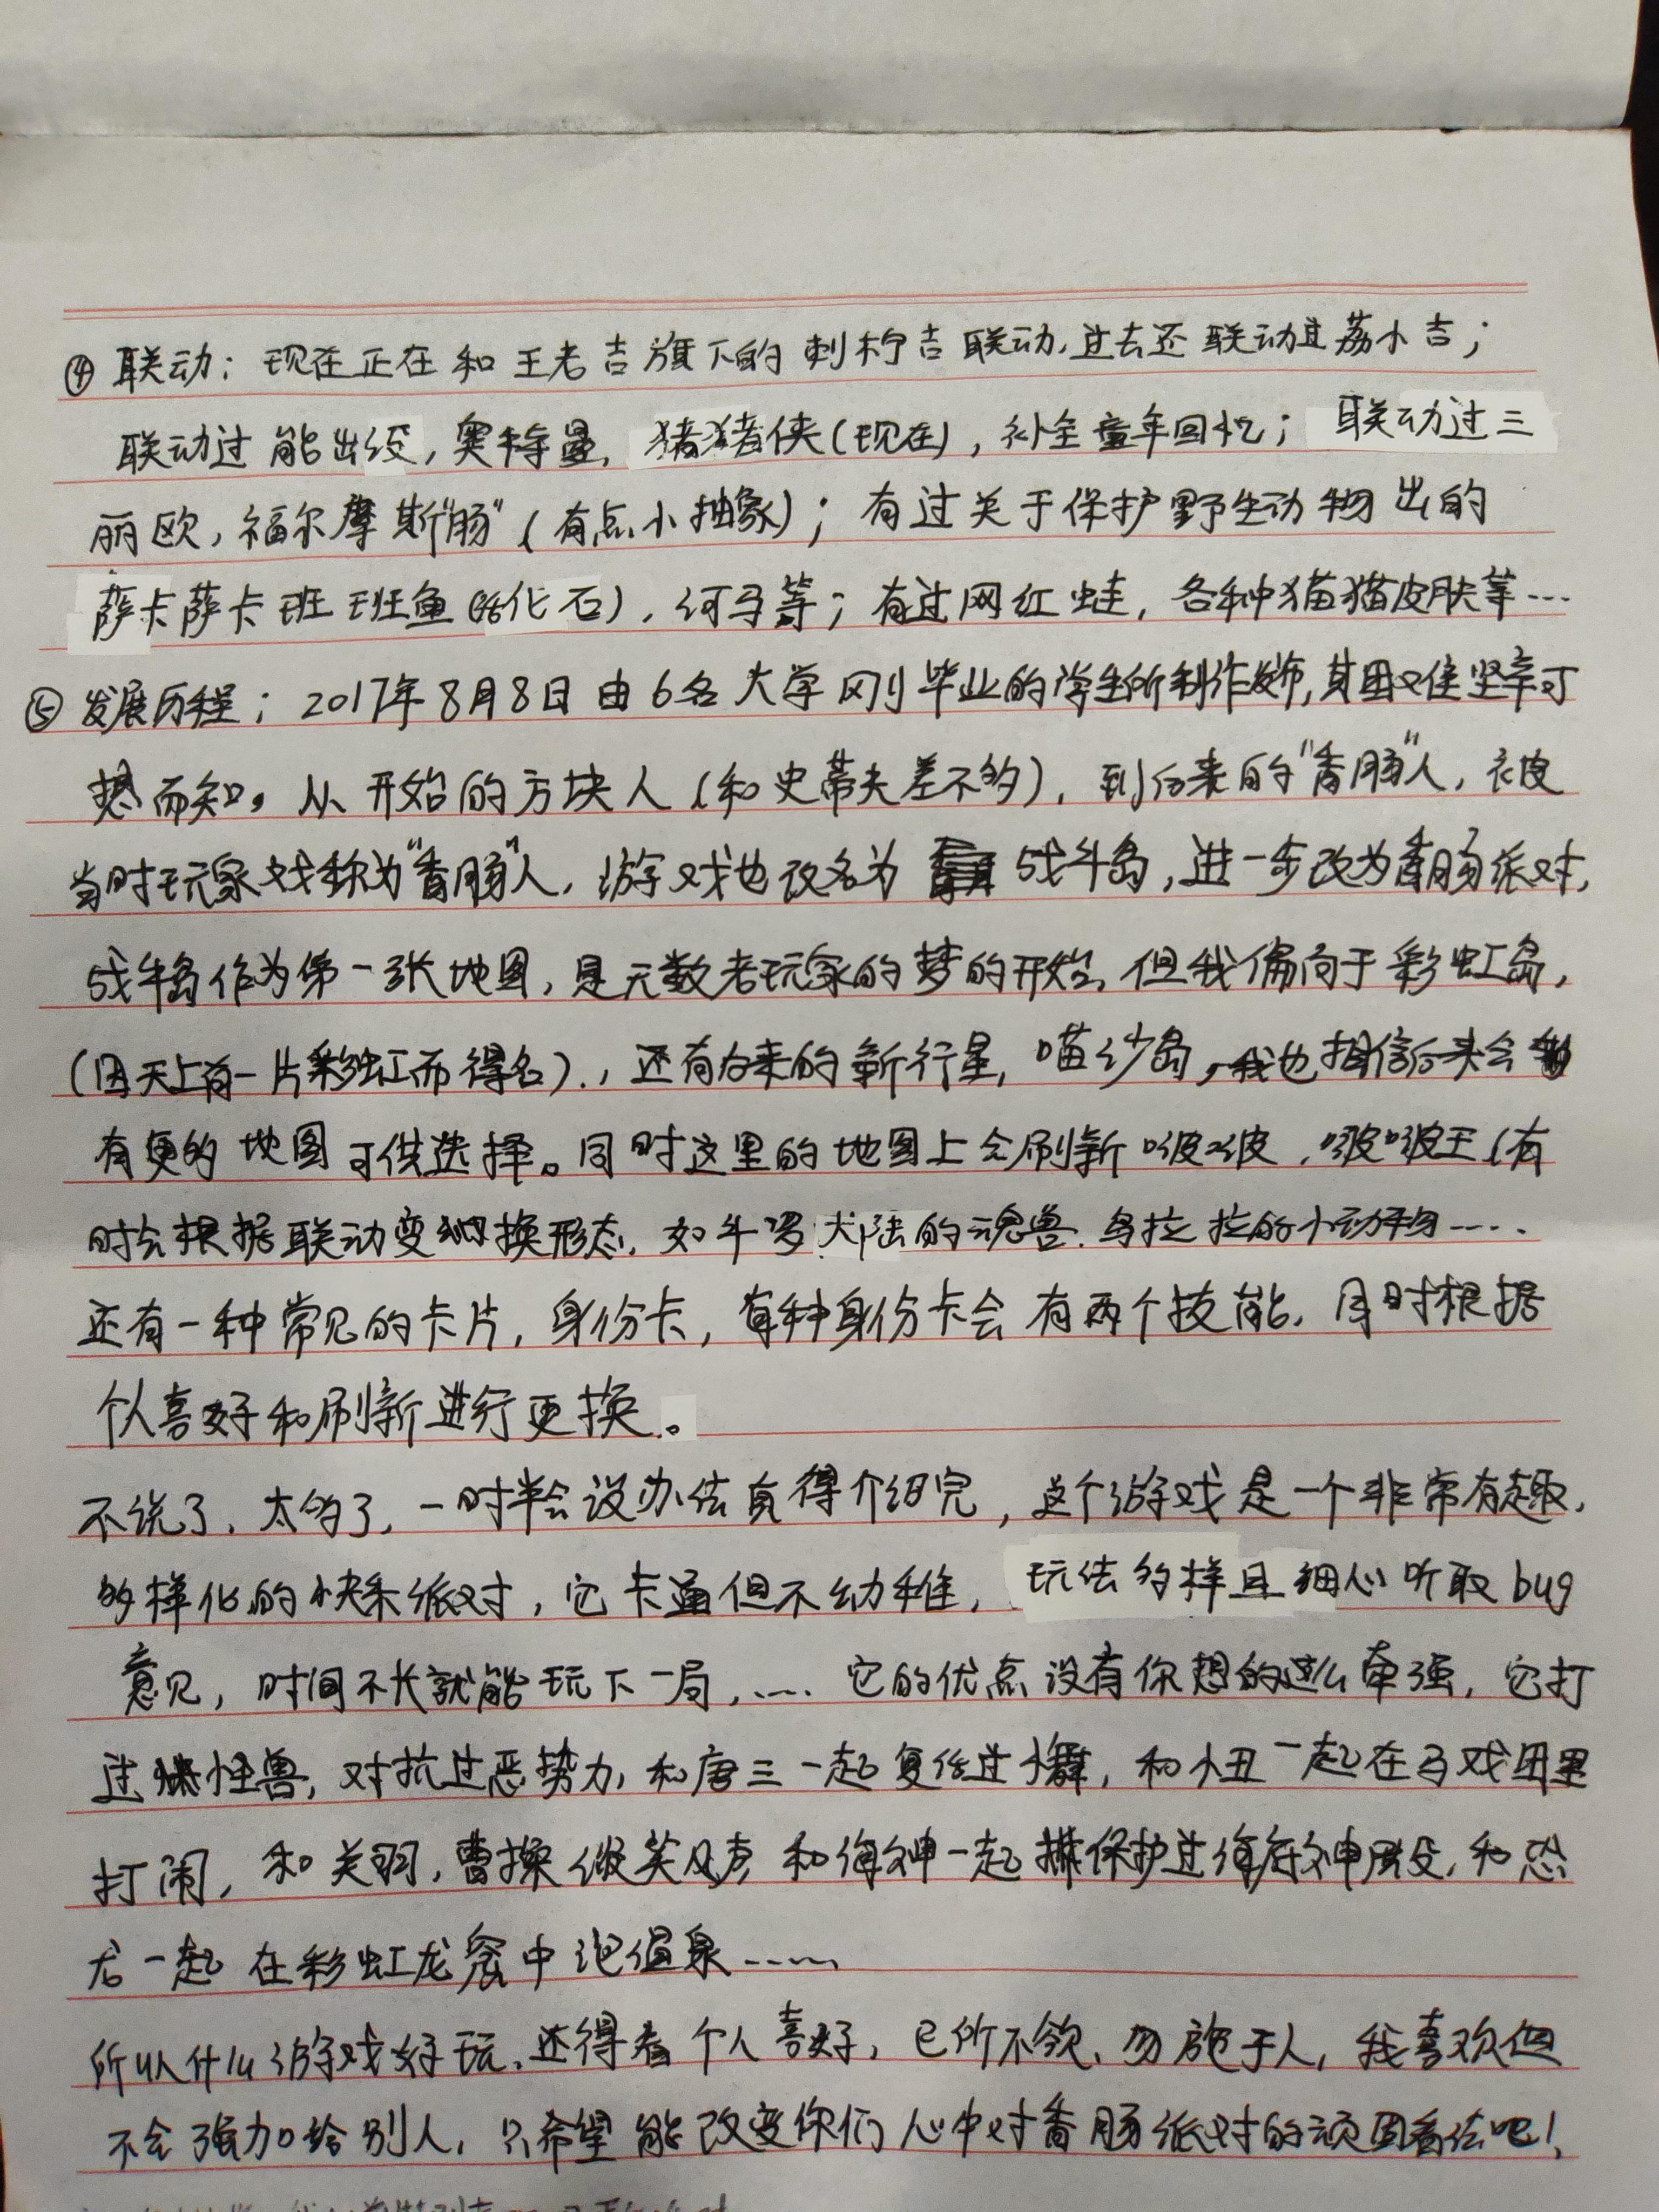 ④联动：现在正在和王老吉旗下的刺柠吉联动，过去还联动过荔小吉；
联动过熊出没，奥特曼，猪猪侠（现在），补全童年回忆；联动过三
丽欧，福尔摩斯“肠”（有点小抽象）；有过关于保护野生动物出的
萨卡萨卡班班鱼（化石），河马等；有过网红蛙，各种猫猫皮肤等…
⑤发展历程；2017年8月8日由6名大学刚毕业的学生所制作发布，其困难坚辛可
想而知。从开始的方块人（和史蒂夫差不多），到后来的“香肠”人，被
当时玩家戏称为“香肠”人，游戏也改名为战斗岛，进一步改为香肠派对，
战斗岛作为第一张地图，是无数老玩家的梦的开始，但我偏向于彩虹岛，
（因天上有一片彩虹而得名）.，还有后来的新行星，喵沙岛，我也相信后来会
有更的地图可供选择。同时这里的地图上会刷新啵啵，啵啵王（有
时会根据联动变换形态，如斗罗大陆的魂兽，乌拉拉的小动物……
还有一种常见的卡片，身份卡，有种身份卡会有两个技能，同时根据
个人喜好和刷新进行更换。
不说了，太多了，一时半会没办法真得介绍完，这个游戏是一个非常有趣，
多样化的快乐派对，它卡通但不幼稚，玩法多样且细心听取bug
意见，时间不长就能玩下一局，…… 它的优点没有你想的这么牵强，它打
过怪兽，对抗过恶势力，和唐三一起复活过小舞，和小丑一起在马戏团里
打闹，和关羽，曹操谈笑风声 和海神一起保护过海底神殿，和恐
龙一起在彩虹龙窟中泡温泉……
所以什么游戏好玩，还得看个人喜好，己所不欲，勿施于人，我喜欢但
不会强加给别人，只希望能改变你们心中对香肠派对的顽固看法吧！